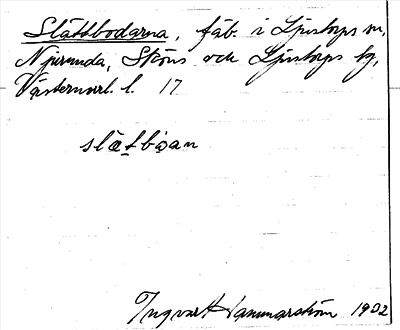 Slättbodarna, fäb. i Ljustorps sn,
Njurunda, Sköns och Ljustorps tg,
Västernorrl. l. 17
slætbọan
Ingvar Hammarström 1902